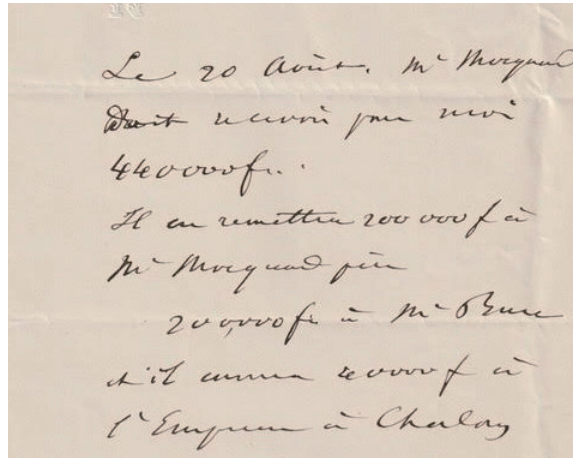 Le 20 Août. Mr Mocquard
doit recevoir pour moi
440000 fr.
Il en remettra 200 000 f à
Mr Mocquard père
200,000 f à Mr Bure
et il enverra 40000 f à
l'Empereur à Chalons